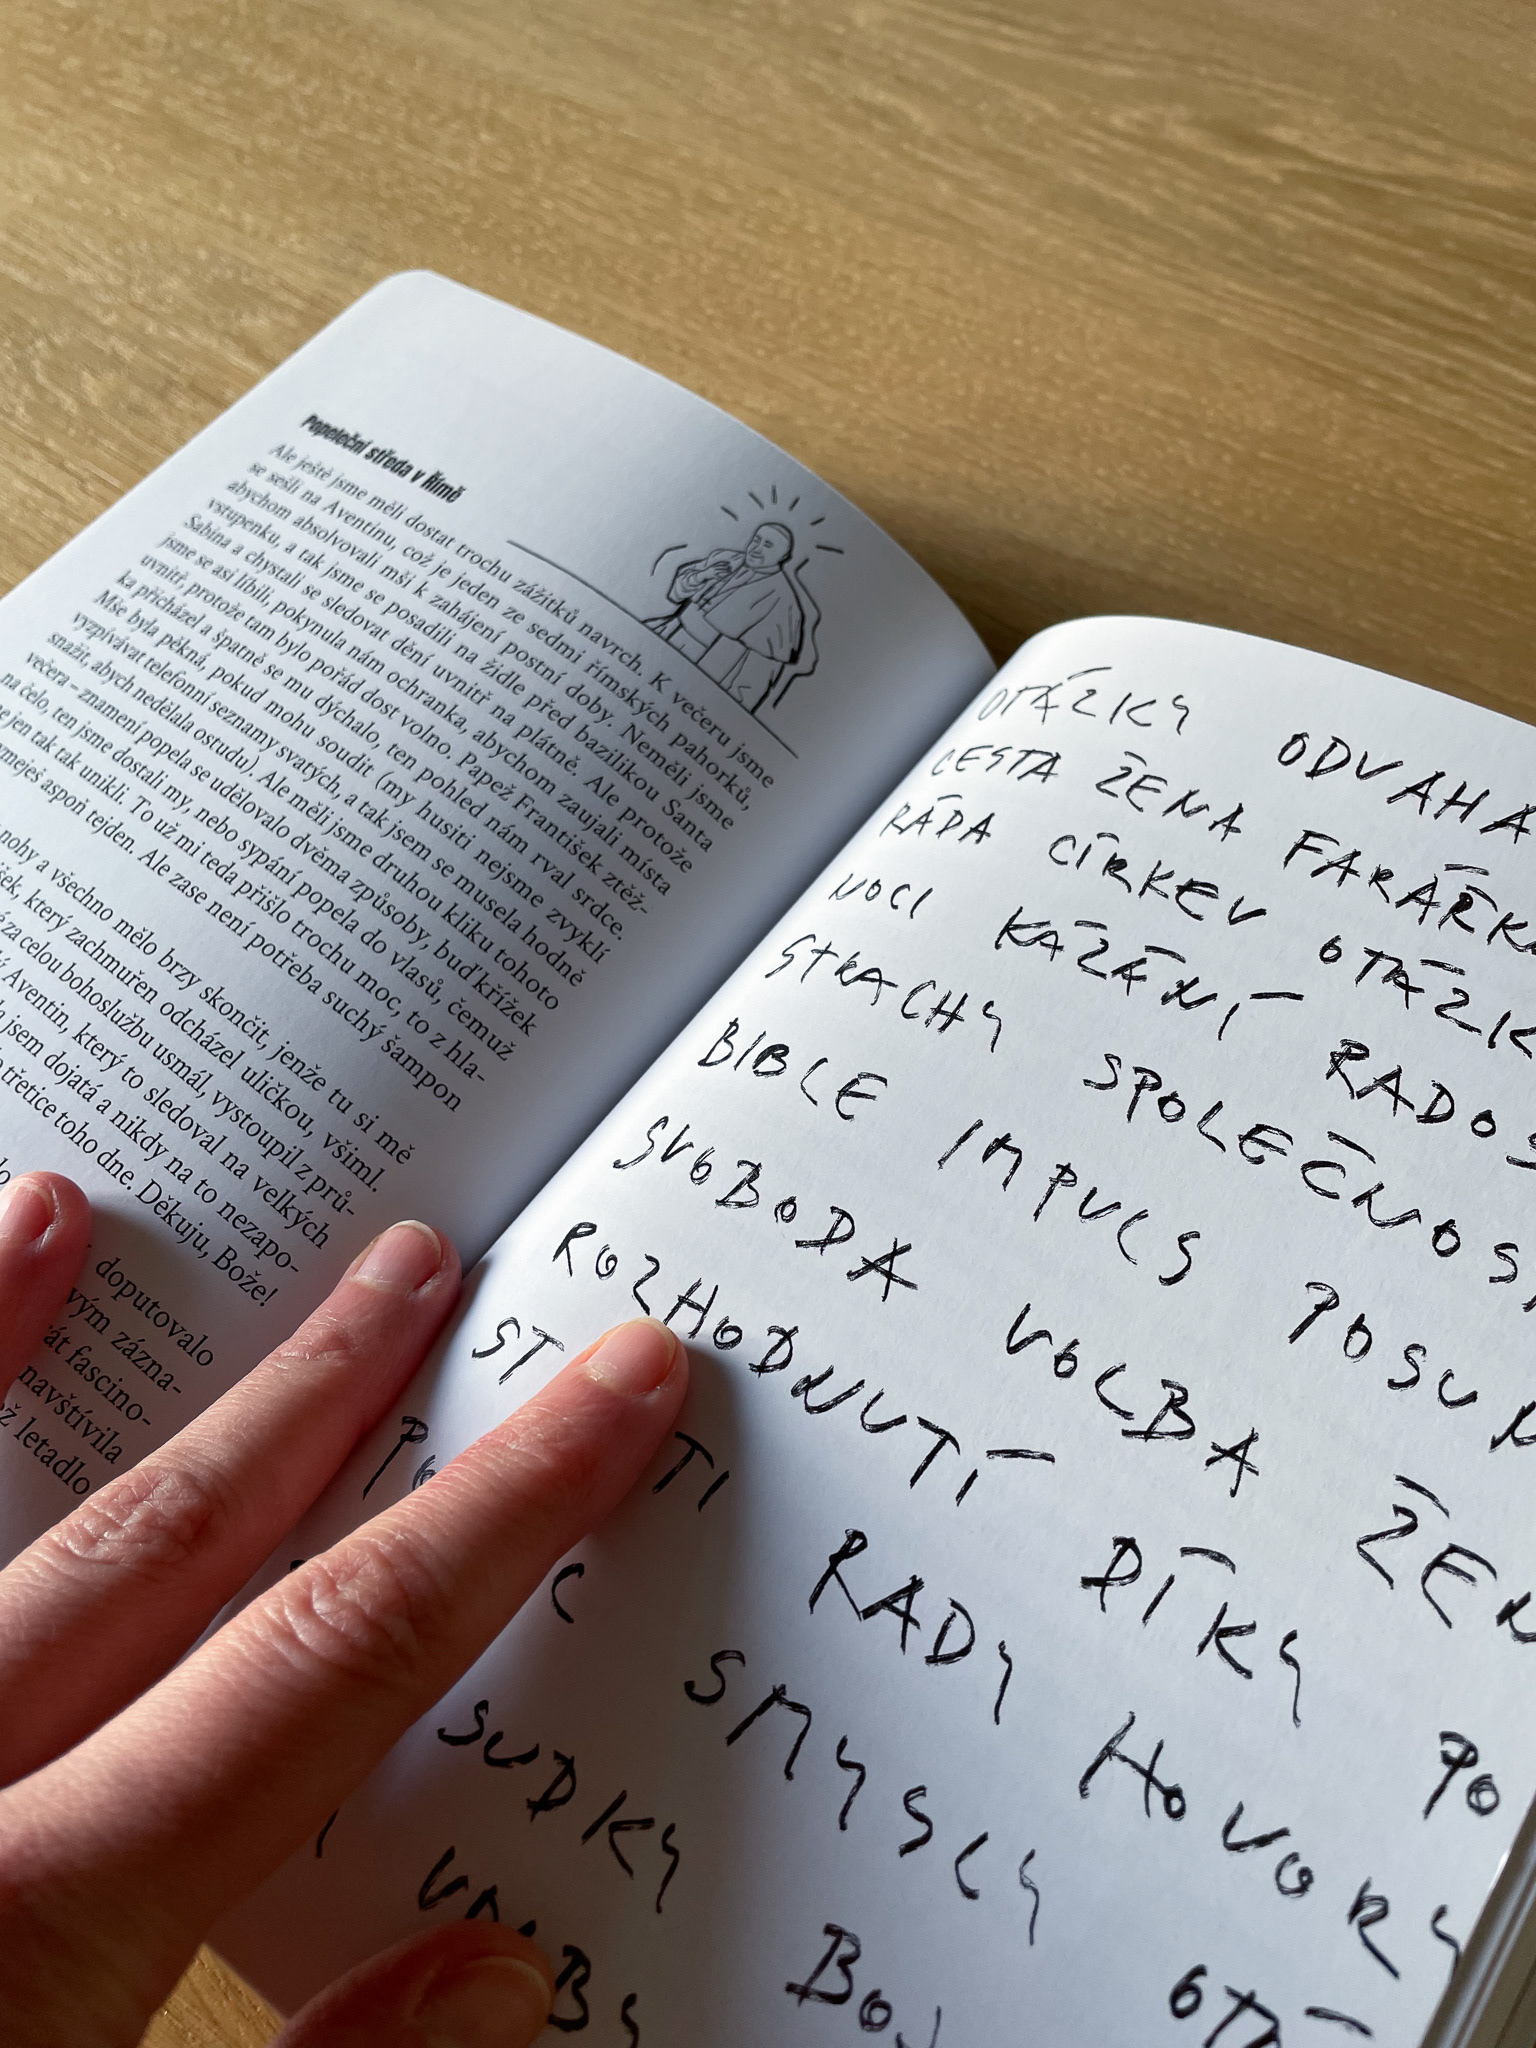 Popeleční středa v Římě
Ale ještě jsme měli dostat trochu zážitků navrch. K večeru jsme
se sešli na Aventinu, což je jeden ze sedmi římských pahorků,
abychom absolvovali mši k zahájení postní doby. Neměli jsme
vstupenku, a tak jsme se posadili na židle před bazilikou Santa
Sabina a chystali se sledovat dění uvnitř na plátně. Ale protože
jsme se asi líbili, pokynula nám ochranka, abychom zaujali místa
uvnitř, protože tam bylo pořád dost volno. Papež František ztěž-
ka přicházel a špatně se mu dýchalo, ten pohled nám rval srdce.
Mše byla pěkná, pokud mohu soudit (my husiti nejsme zvyklí
vyzpívávat telefonní seznamy svatých, a tak jsem se musela hodně
snažit, abych nedělala ostudu). Ale měli jsme druhou kliku tohoto
večera – znamení popela se udělovalo dvěma způsoby, buď křížek
na čelo, ten jsme dostali my, nebo sypání popela do vlasů, čemuž
jen tak tak unikli. To už mi teda přišlo trochu moc, to z hla-
nesmeješ aspoň tejden. Ale zase není potřeba suchý šampon
nohy a všechno mělo brzy skončit, jenže tu si mě
který zachmuřen odcházel uličkou, všiml.
za celou bohoslužbu usmál, vystoupil z prů-
Aventin, který to sledoval na velkých
jsem dojatá a nikdy na to nezapo-
třetice toho dne. Děkuju, Bože!
doputovalo
vým zázna-
fascino-
navštívila
letadlo
OTÁZKY ODVAHA
CESTA ŽENA FARÁŘK
RÁDA CÍRKEV OTÁZK
NOCI KÁZÁNÍ RADOS
STRACHY SPOLEČNOS
BIBLE IMPULS POSUN
SVOBODA VOLBA ŽEN
ROZHODNUTÍ DÍKY PO
ST TI RADY HOVORY
PO C SMYSLY OTÁ
SUDKY BOJ